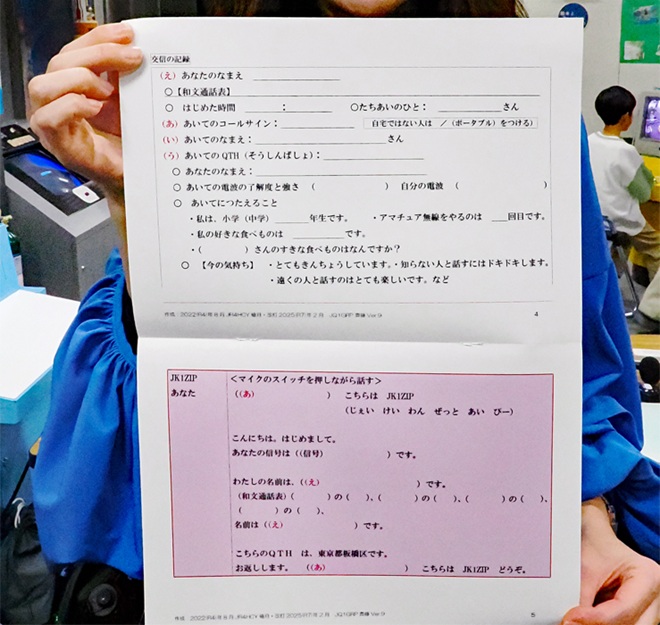 交信の記録
（え）あなたのなまえ ＿＿＿＿＿＿＿＿
○【和文通話表】＿＿＿＿＿＿＿＿＿＿＿＿＿＿＿＿
○ はじめた時間 ＿＿＿＿：＿＿＿＿ ○たちあいのひと：＿＿＿＿＿＿さん
（あ）あいてのコールサイン：＿＿＿＿＿＿＿ 自宅ではない人は ／（ポータブル）をつける）
（い）あいてのなまえ：＿＿＿＿＿＿＿＿＿＿＿＿さん
（う）あいてのQTH（そうしんばしょ）：＿＿＿＿＿＿＿＿
○ あなたのなまえ：＿＿＿＿＿＿＿＿＿＿＿＿
○ あいての電波の了解度と強さ （　　　　　　） 自分の電波 （　　　　　　）
○ あいてにつたえること
・私は、小学（中学）＿＿＿＿年生です。 ・アマチュア無線をやるのは ＿＿回目です。
・私の好きな食べものは ＿＿＿＿＿＿です。
・（　　　　　）さんのすきな食べものはなんですか？
○ 【今の気持ち】 ・とてもきんちょうしています。・知らない人と話すにはドキドキします。
・遠くの人と話すのはとても楽しいです。など
4
JK1ZIP ＜マイクのスイッチを押しながら話す＞
あなた （（あ）　　　　　　） こちらは JK1ZIP
（じぇい けい わん ぜっと あい ぴー）
こんにちは。はじめまして。
あなたの信号は（（信号）　　　　　　）です。
わたしの名前は、（（え）　　　　　　　　）です。
（和文通話表）（　　　　）の（　）、（　　　　）の（　）、（　　　　）の（　）、
（　　　　）の（　）、
名前は（（え）　　　　　　）です。
こちらのQTH は、東京都板橋区です。
お返しします。 （（あ）　　　　　　　　） こちらは JK1ZIP どうぞ。
5